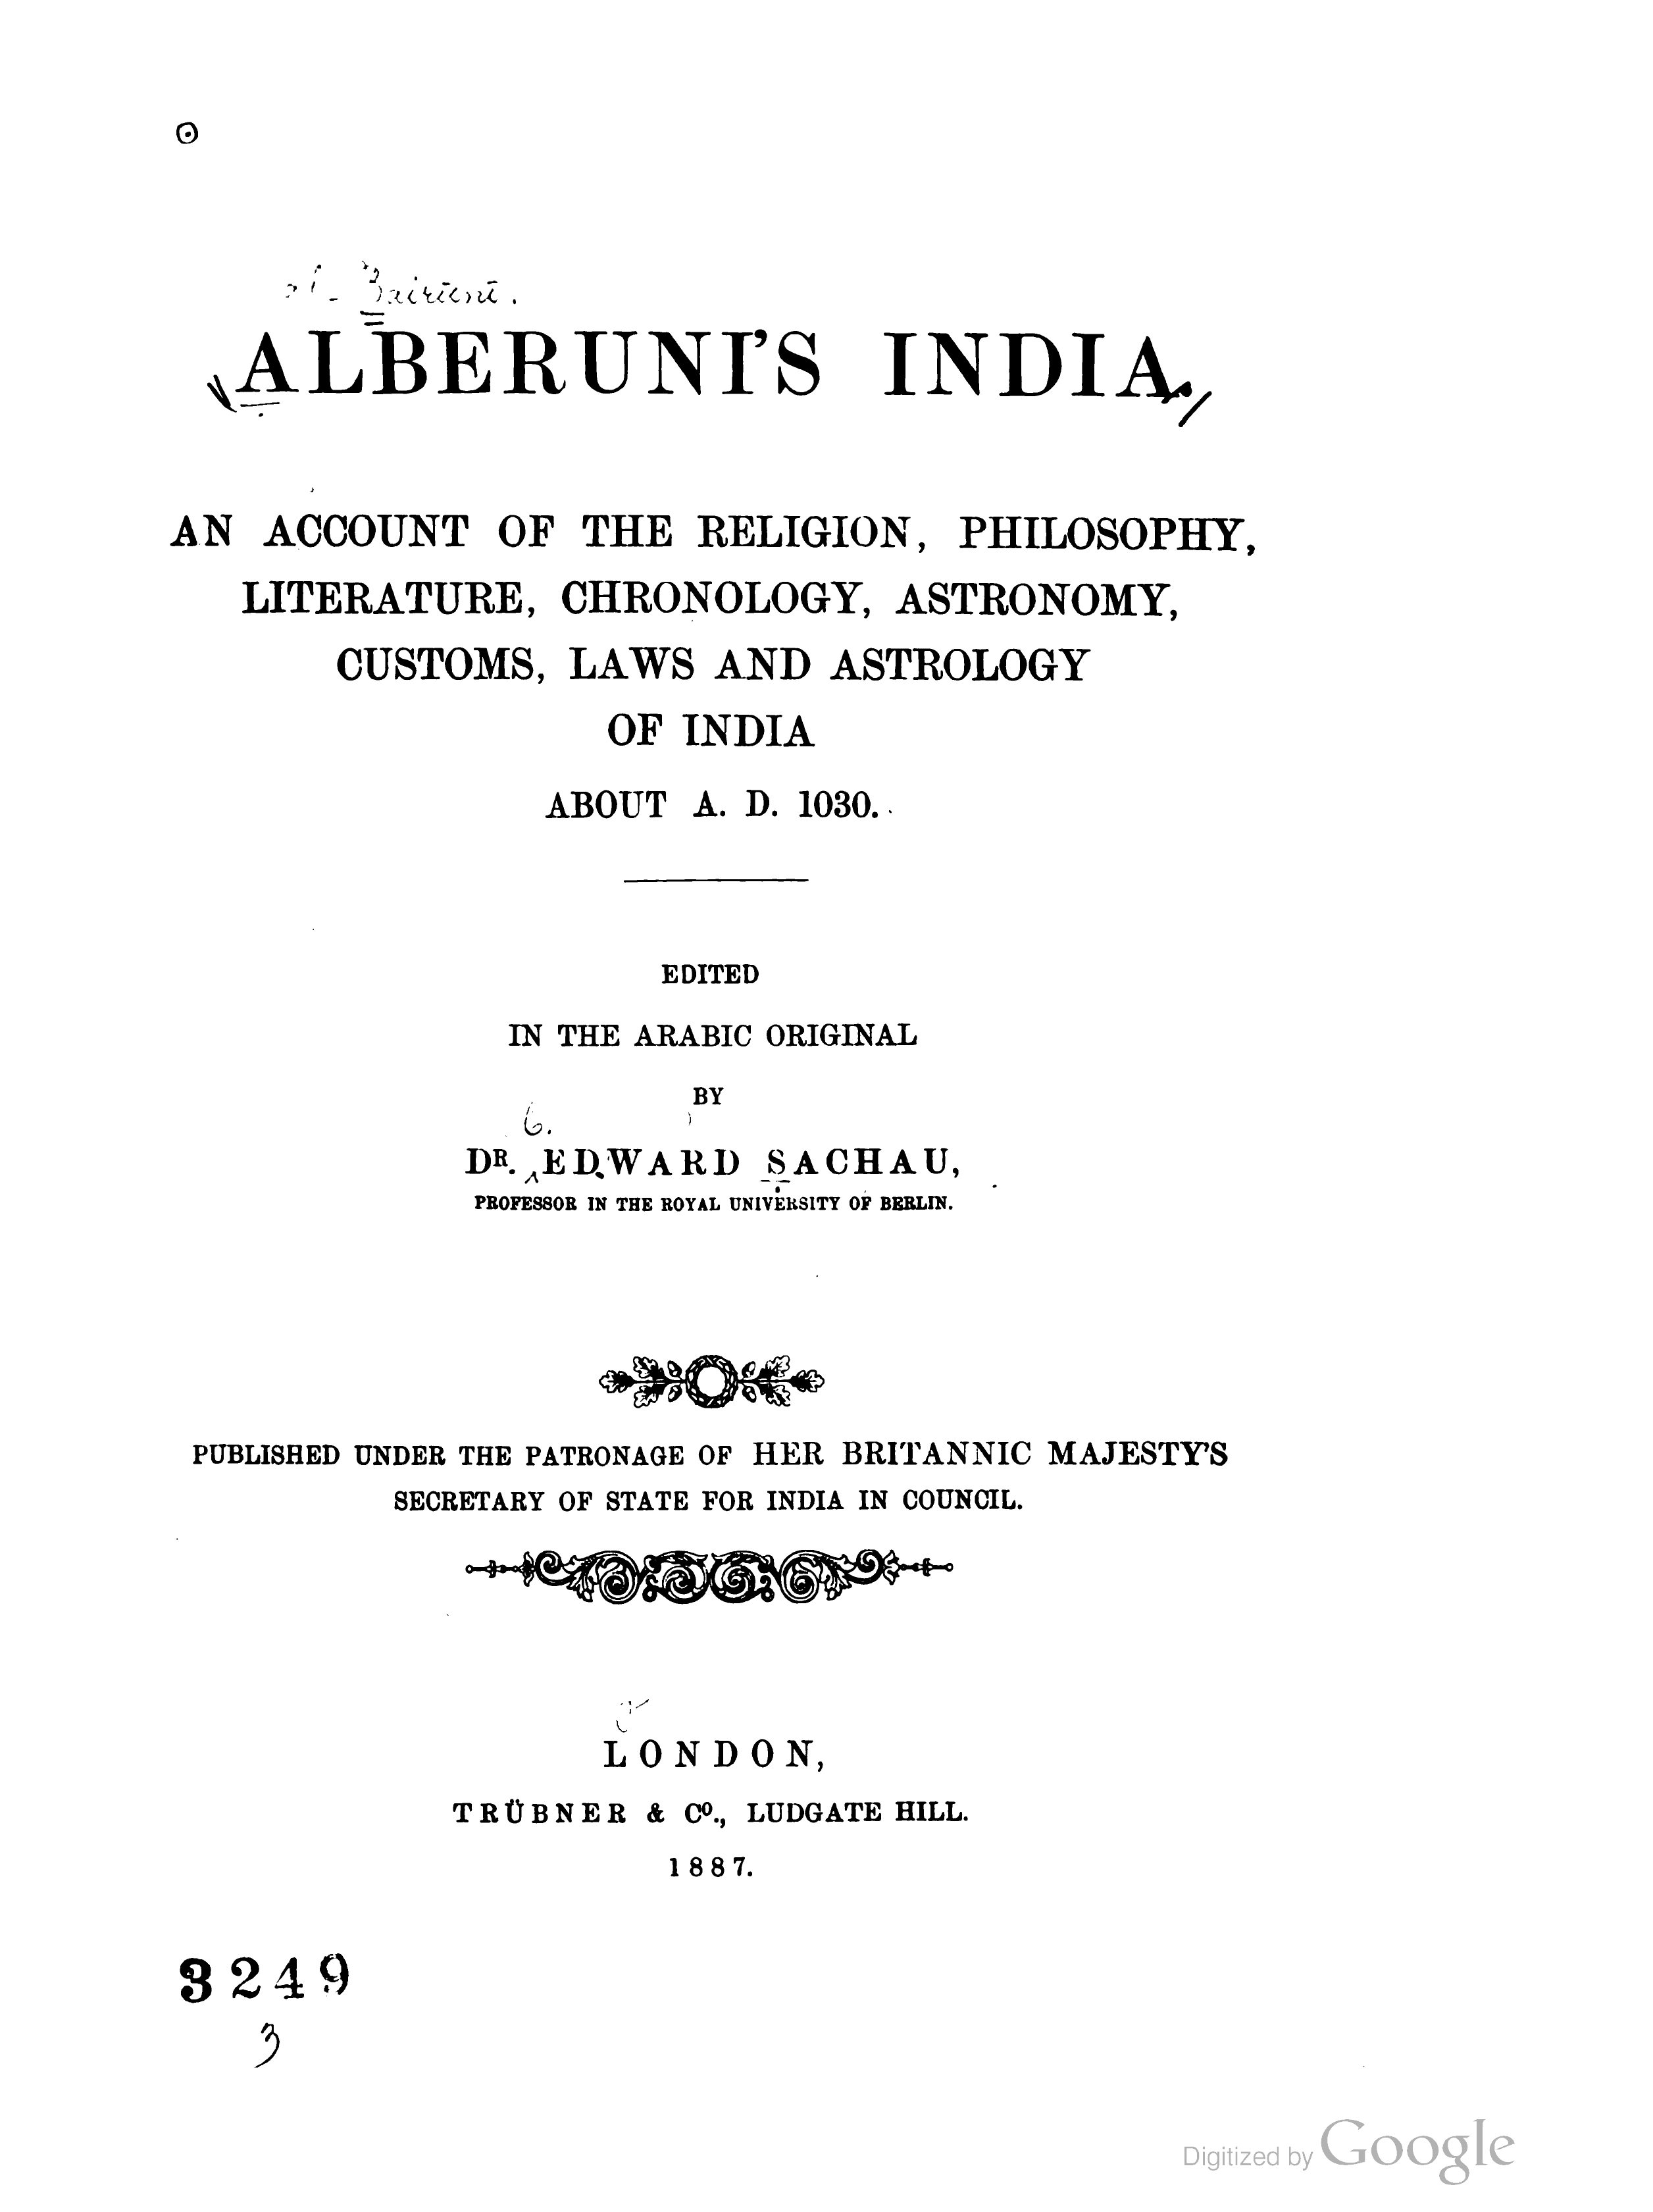 ALBERUNI'S INDIA.
AN ACCOUNT OF THE RELIGION, PHILOSOPHY,
LITERATURE, CHRONOLOGY, ASTRONOMY,
CUSTOMS, LAWS AND ASTROLOGY
OF INDIA
ABOUT A. D. 1030.
EDITED
IN THE ARABIC ORIGINAL
BY
DR. EDWARD SACHAU,
PROFESSOR IN THE ROYAL UNIVERSITY OF BERLIN.
PUBLISHED UNDER THE PATRONAGE OF HER BRITANNIC MAJESTY'S
SECRETARY OF STATE FOR INDIA IN COUNCIL.
LONDON,
TRÜBNER & Co., LUDGATE HILL.
1887.
3249
3
Digitized by Google